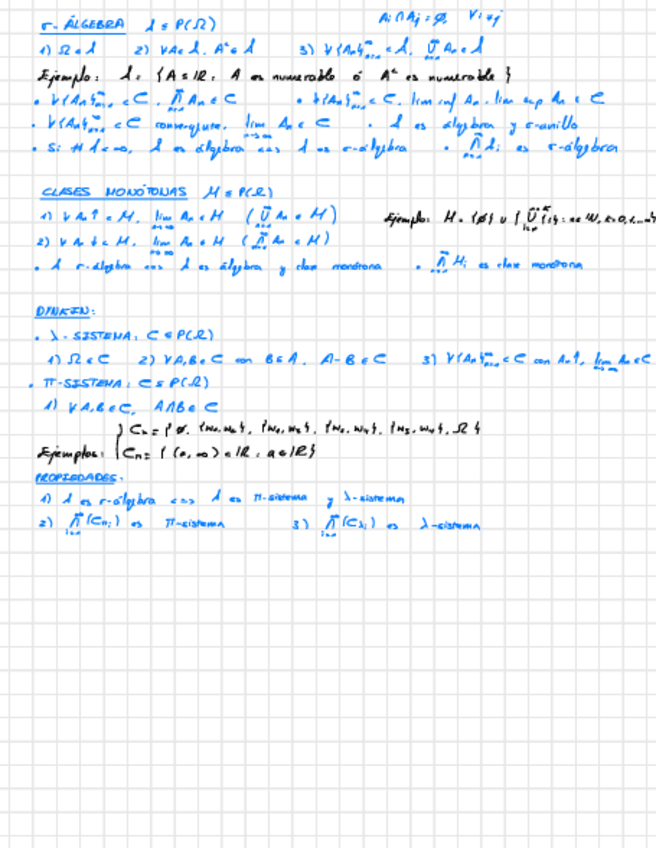 Ai ∩ Aj = ∅, ∀ i ≠ j
σ-ÁLGEBRA A ⊆ P(Ω)
1) Ω ∈ A 2) ∀A ∈ A, Aᶜ ∈ A 3) ∀{An}ₙ₌₁^∞ ⊂ A, ⋃ₙ₌₁^∞ An ∈ A
Ejemplo: A = {A ⊆ ℝ : A es numerable ó Aᶜ es numerable}
• ∀{An}ₙ₌₁^∞ ⊂ C, ⋂ₙ₌₁^∞ An ∈ C • ∀{An}ₙ₌₁^∞ ⊂ C, lim inf An, lim sup An ∈ C
• ∀{An}ₙ₌₁^∞ ⊂ C convergente, lim n→∞ An ∈ C • A es álgebra y σ-anillo
• Si #A < ∞, A es álgebra <=> A es σ-álgebra • ⋂ Ai es σ-álgebra
CLASES MONÓTONAS M ⊆ P(Ω)
1) ∀ An↑ ⊂ M, lim n→∞ An ∈ M (⋃ₙ₌₁^∞ An ∈ M) Ejemplo: M = {∅} ∪
2) ∀ An↓ ⊂ M, lim n→∞ An ∈ M (⋂ₙ₌₁^∞ An ∈ M)
• A σ-álgebra <=> A es álgebra y clase monótona • ⋂ Mi es clase monótona
DYNKIN:
• λ-SISTEMA: C ⊆ P(Ω)
1) Ω ∈ C 2) ∀A,B ∈ C con B ⊆ A, A-B ∈ C 3) ∀{An}ₙ₌₁^∞ ⊂ C con An↑, lim n→∞ An ∈ C
• π-SISTEMA: C ⊆ P(Ω)
1) ∀A,B ∈ C, A∩B ∈ C
Ejemplos:
PROPIEDADES:
1) A es σ-álgebra <=> A es π-sistema y λ-sistema
2) ⋂(Cπi) es π-sistema 3) ⋂(Cλi) es λ-sistema